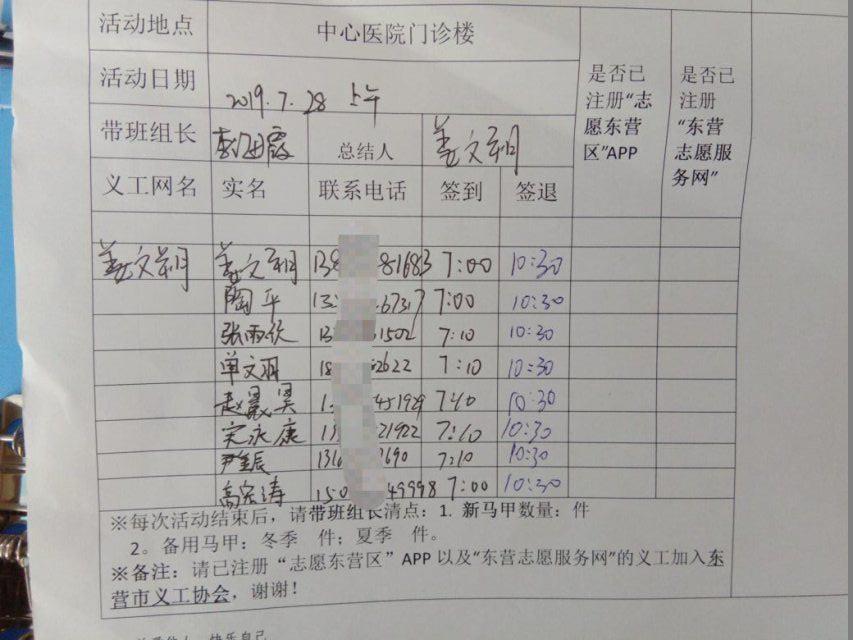 活动地点 中心医院门诊楼
活动日期 2019.7.28 上午
带班组长 总结人 姜文朔
是否已注册“志愿东营区”APP
是否已注册“东营志愿服务网”
义工网名 实名 联系电话 签到 签退
姜文朔 姜文朔 138 81683 7:00 10:30
陶平 13 67317 7:00 10:30
张雨欣 13 1502 7:10 10:30
单文羽 18 2622 7:10 10:30
赵晟昊 1 451929 7:10 10:30
宋永康 13 21922 7:10 10:30
尹振 1316 1690 7:10 10:30
高宏涛 150 49998 7:00 10:30
※每次活动结束后，请带班组长清点：1. 新马甲数量： 件
2。备用马甲：冬季 件；夏季 件。
※备注：请已注册“志愿东营区”APP 以及“东营志愿服务网”的义工加入东
营市义工协会，谢谢！